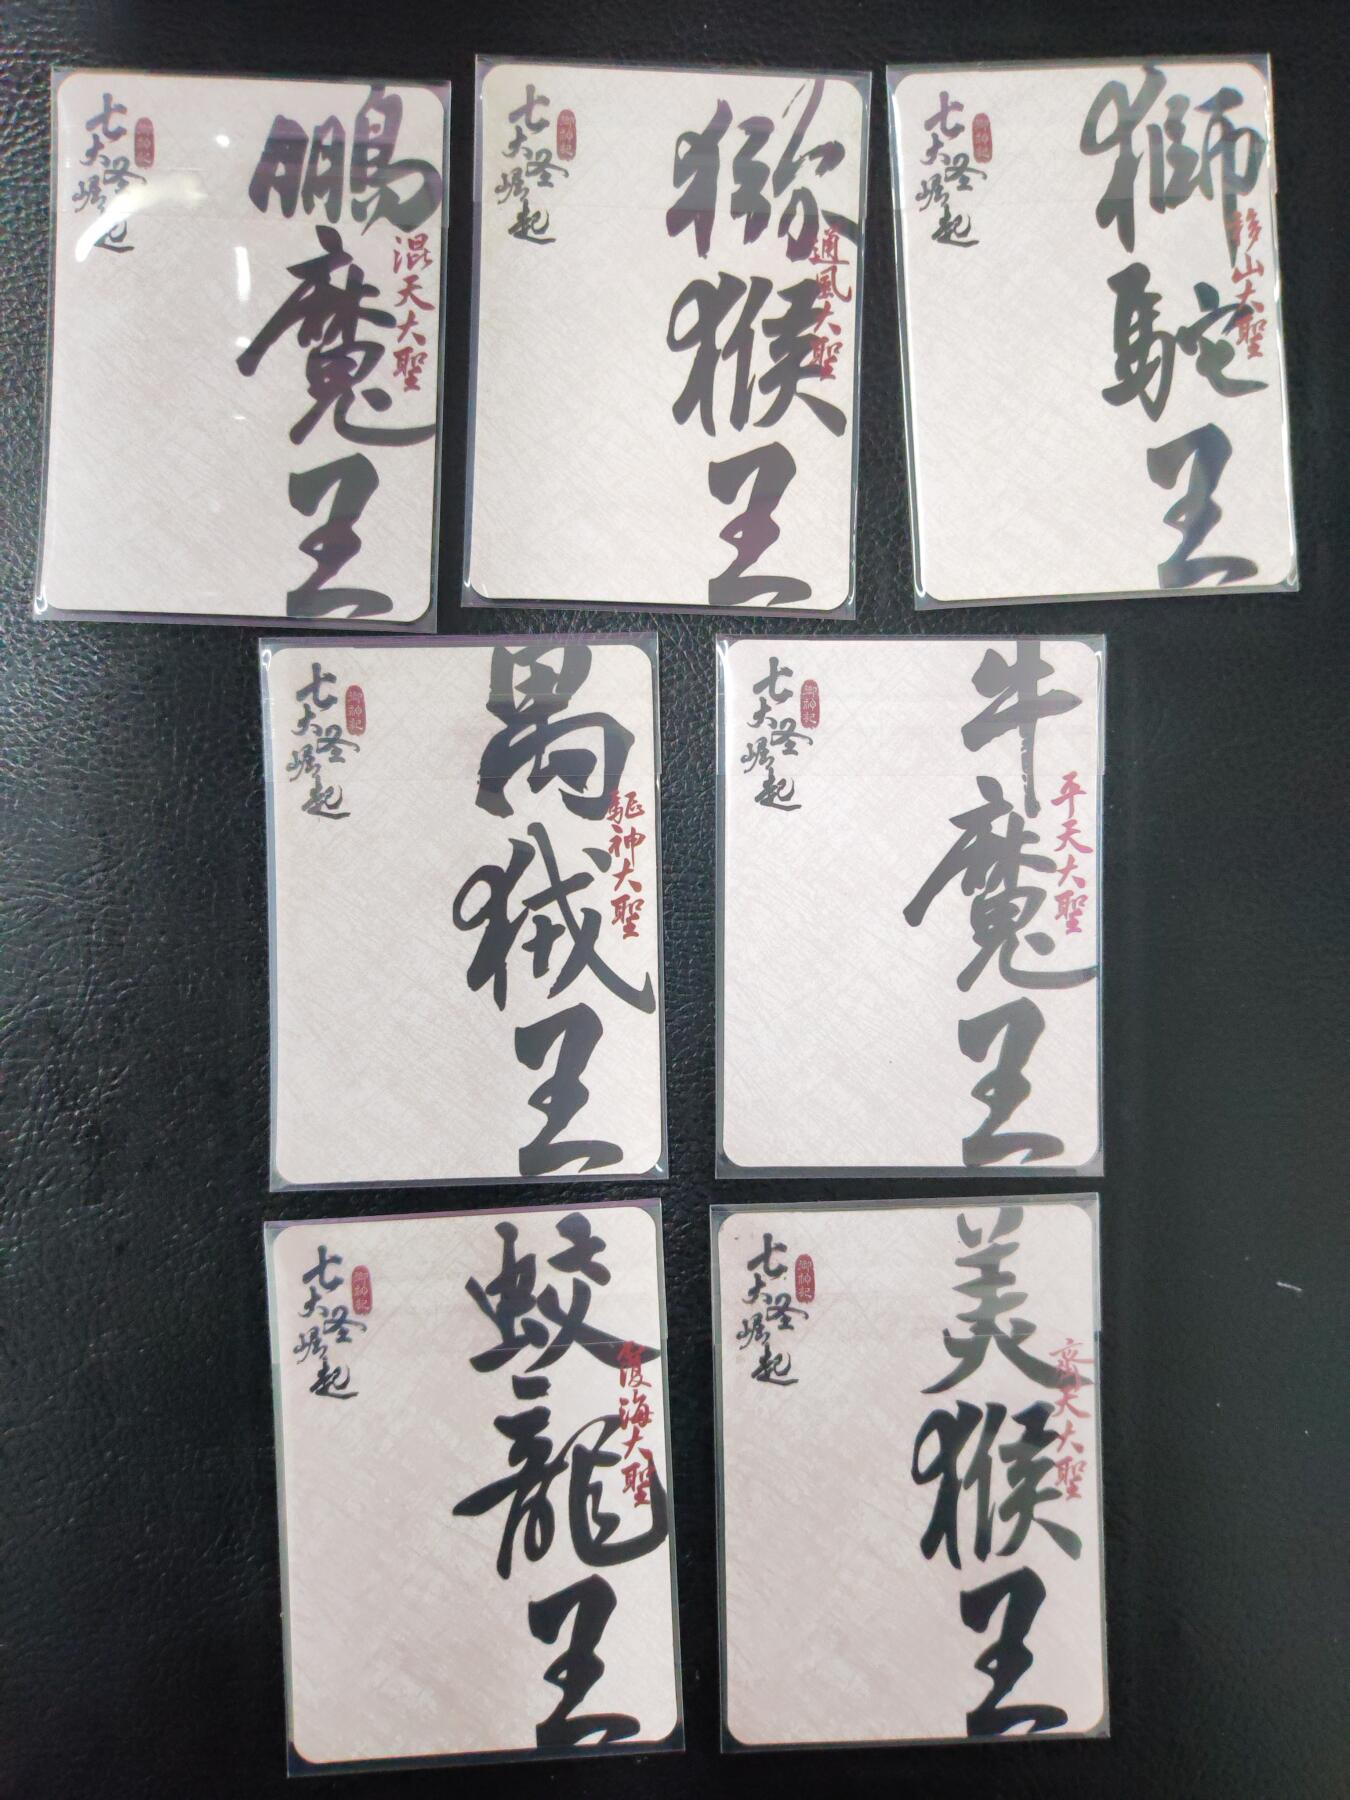 七大圣崛起
御神記
鵬魔王
混天大聖
七大圣崛起
御神記
獼猴王
通風大聖
七大圣崛起
御神記
獅駝王
移山大聖
七大圣崛起
御神記
禺狨王
驅神大聖
七大圣崛起
御神記
牛魔王
平天大聖
七大圣崛起
御神記
蛟龍王
覆海大聖
七大圣崛起
御神記
美猴王
齊天大聖